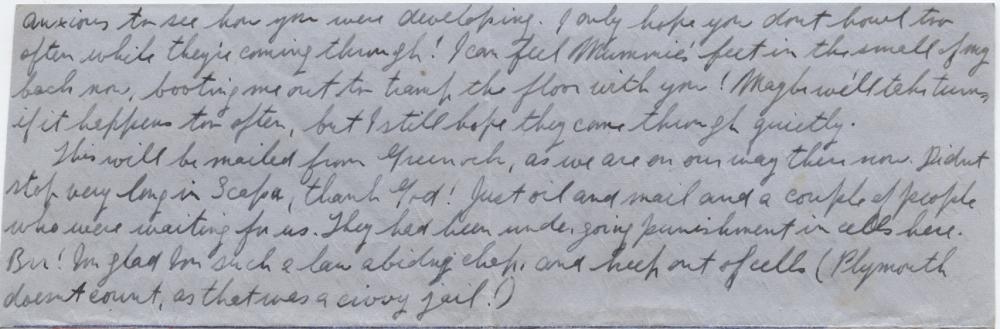 anxious to see how you were developing. I only hope you dont howl too
often while they're coming through! I can feel Mummie's feet in the small of my
back now, booting me out to tramp the floor with you! Maybe we'll take turns,
if it happens too often, but I still hope they come through quietly.
This will be mailed from Greenock, as we are on our way there now. Didnt
stop very long in Scapa, thank God! Just oil and mail and a couple of people
who were waiting for us. They had been undergoing punishment in cells here.
Brr! Im glad Im such a law abiding chap, and keep out of cells (Plymouth
doesnt count, as that was a civvy jail!)